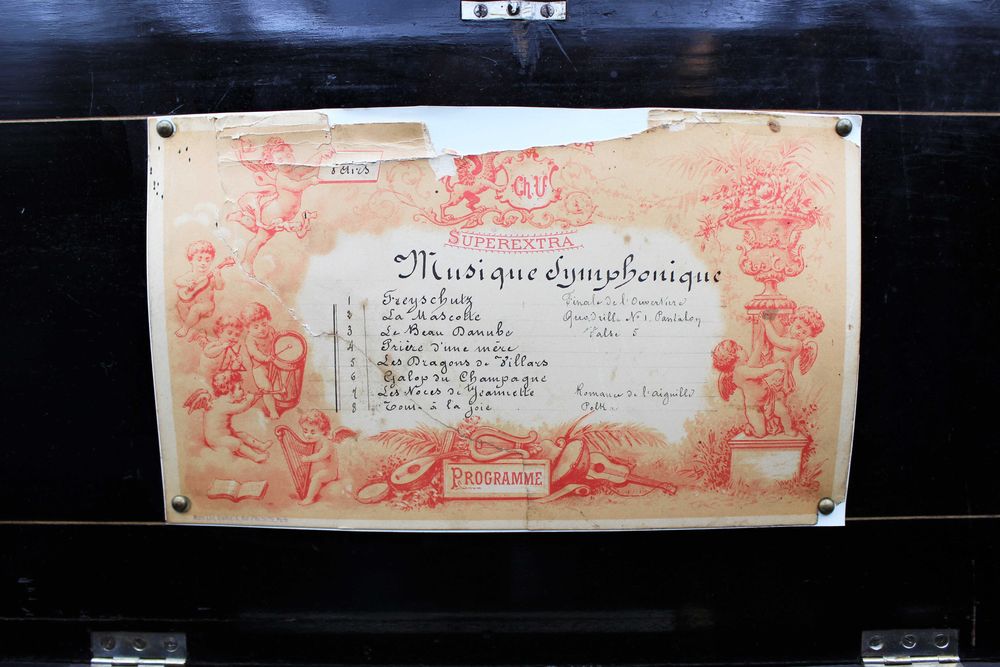 8 Airs
Ch. U
SUPEREXTRA
Musique Symphonique
1 Freyschutz Finale de l'Ouverture
2 La Mascotte Quadrille No 1. Pantalon
3 Le Beau Danube Valse 5
4 Prière d'une mère
5 Les Dragons de Villars
6 Galop du Champagne
7 Les Noces de Jeannette Romance de l'aiguille
8 Tout à la joie Polka
PROGRAMME